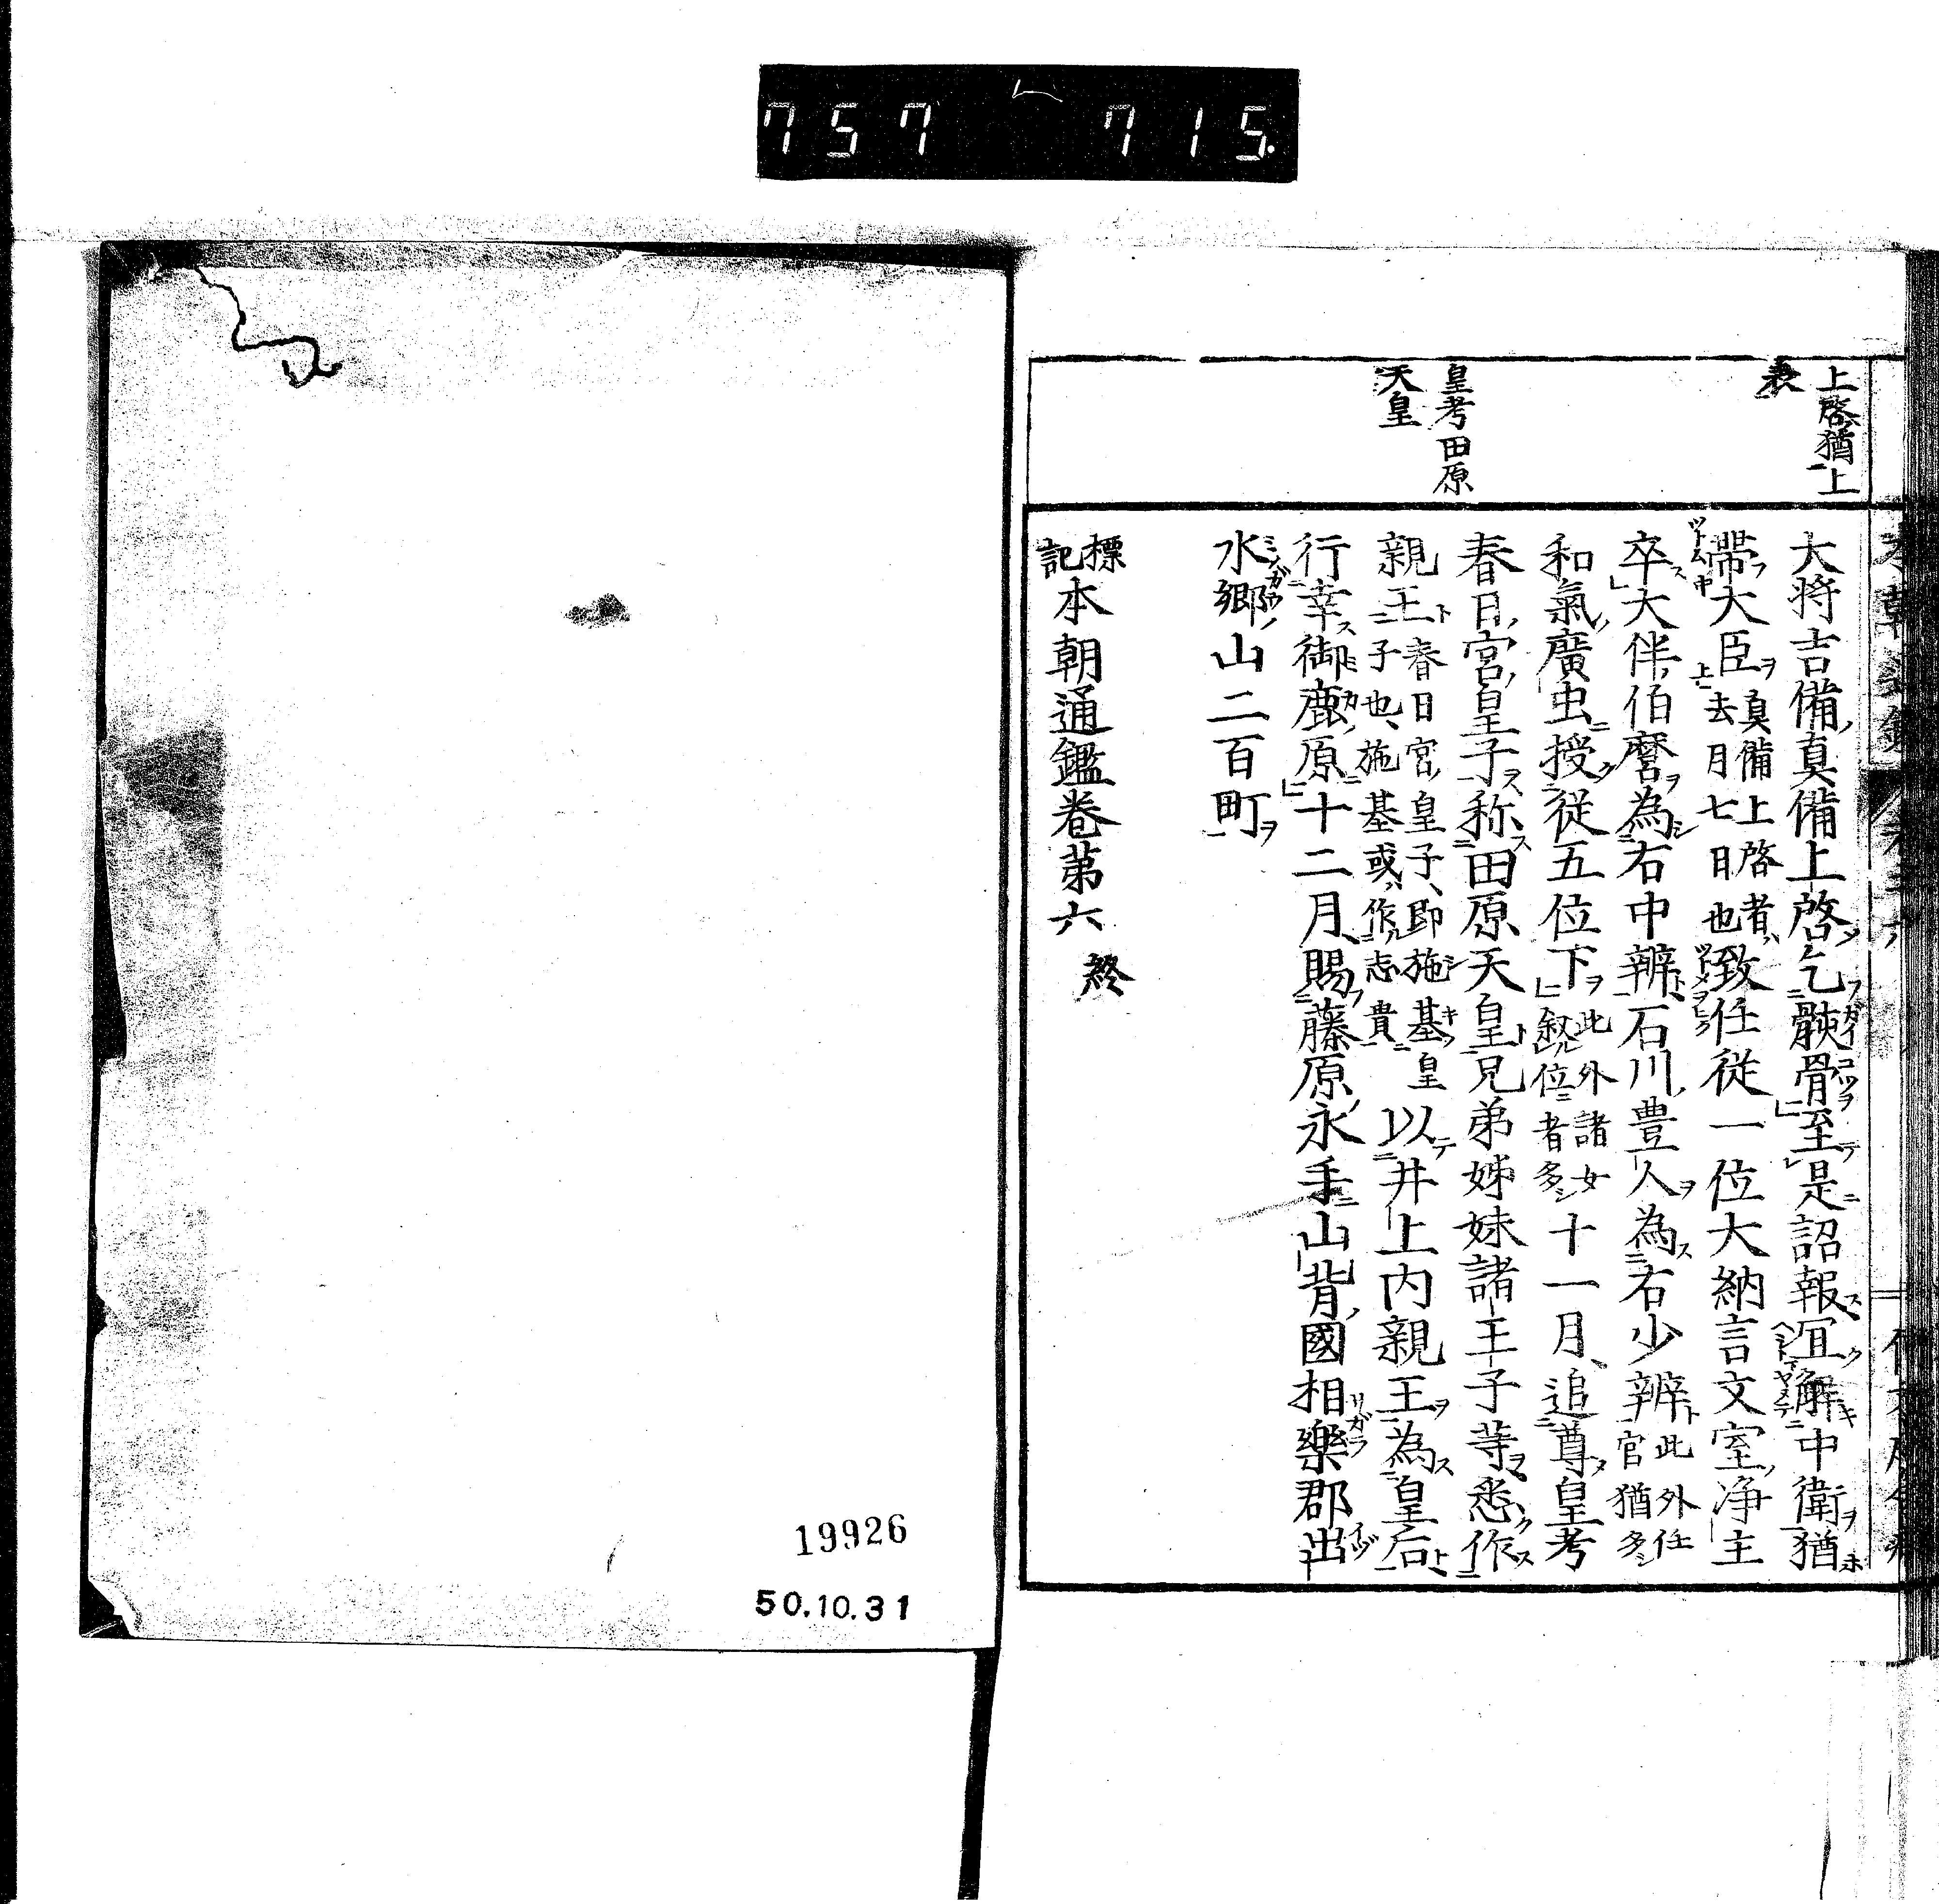 757 715.
上啓猶上
表
皇考田原
天皇
大將吉備眞備上啓乞骸骨至是詔報宜解中衛猶
帶大臣眞備上啓者去月七日也致仕從一位大納言文室淨主
卒大伴伯麿為右中辨石川豊人為右少辨此外任官猶多
和氣廣虫授從五位下此外諸女叙位者多十一月追尊皇考
春日宮皇子称田原天皇兄弟姊妹諸王子等悉作
親王春日宮皇子即施基皇子也施基或作志貴以井上内親王為皇后
行幸御鹿原十二月賜藤原永手山背國相樂郡出
水郷山二百町
標記本朝通鑑卷第六終
19926
50.10.31